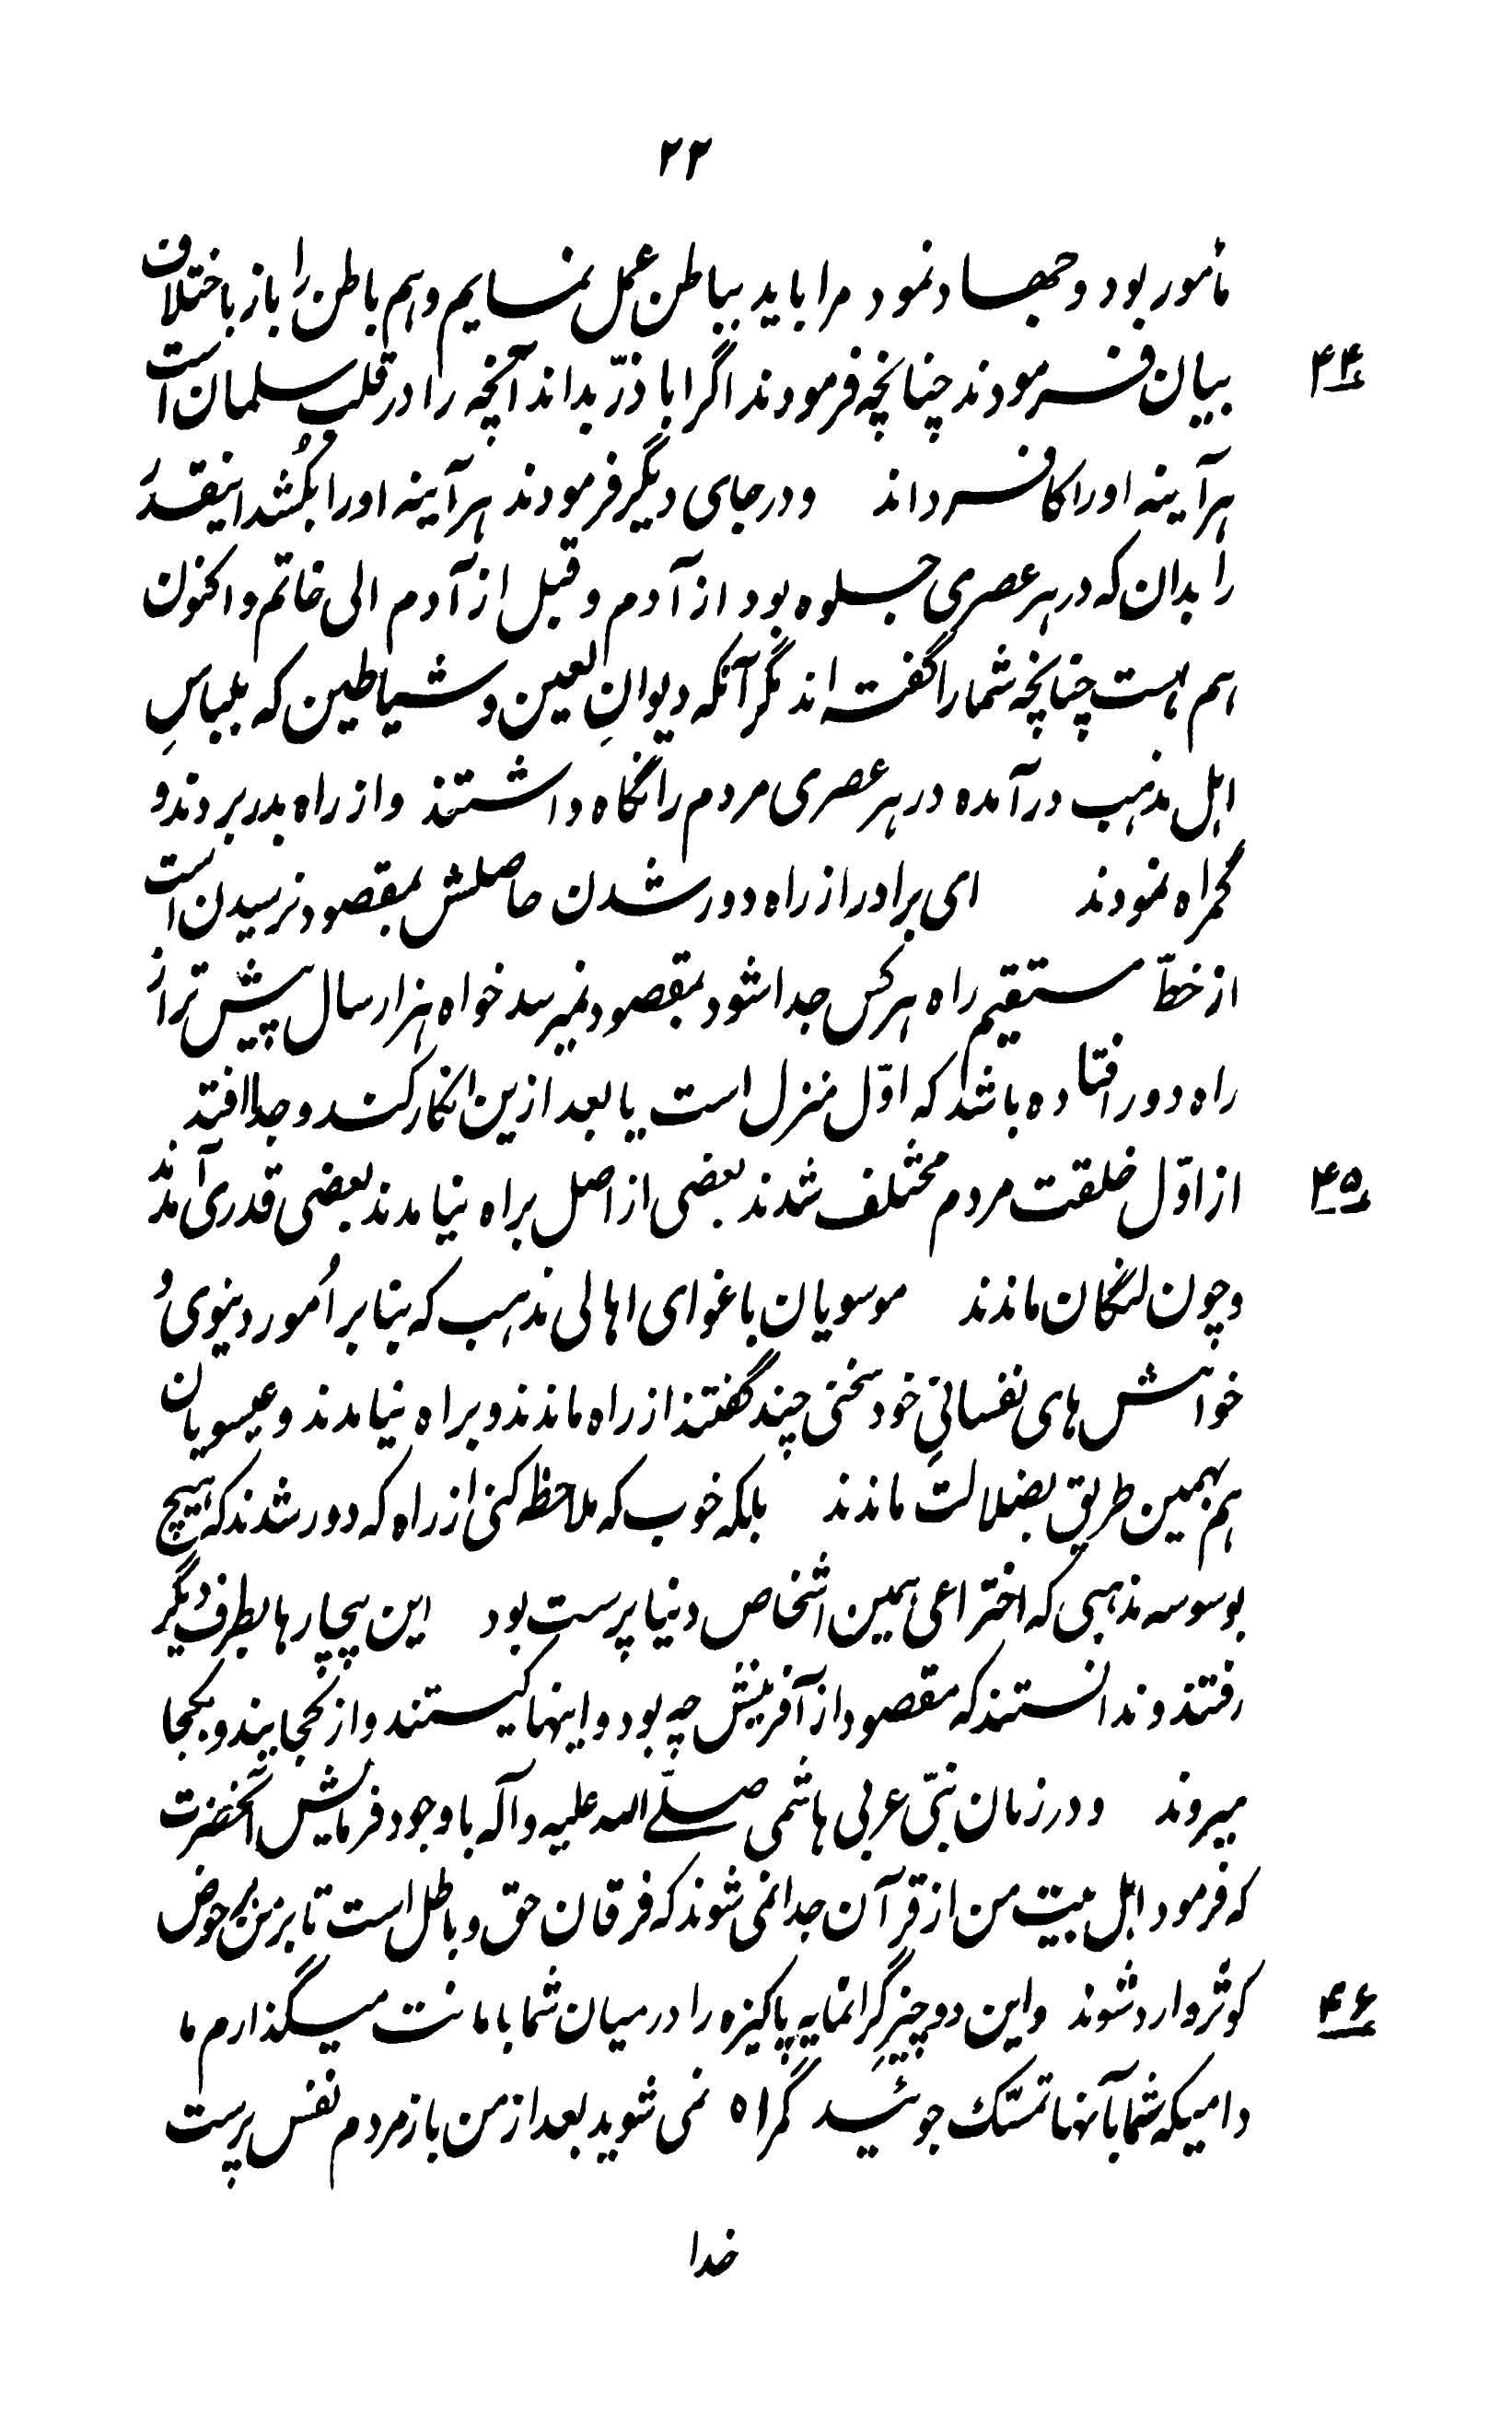 ۲۲
مأمور بود و جهاد نمود مرا باید بباطن عمل نمایم و هم باطن را باز باختلاف
بیان فرمودند چنانچه فرمودند اگر اباذرّ بداند آنچه را در قلب سلمان است
۴۴
هرآینه او را کافر داند و در جای دیگر فرمودند هرآینه او را بکُشد اینقدر
را بدان که در هر عصری جلوه بود از آدم و قبل از آدم الی خاتم و اکنون
هم هست چنانچه شما را گفته اند نگر آنکه دیوانِ لعین و شیاطین که بلباسِ
اهل مذهب درآمده در هر عصری مردم را نگاه داشتند و از راه بدر بردند و
گمراه نمودند ای برادر از راه دور شدن حاصلش بمقصود نرسیدن است
از خطّ مستقیم راه هر کس جدا شود بمقصود نمیرسد خواه هزار سال پیش تر از
راه دور افتاده باشد که اوّل منزل است یا بعد ازین انکار کند و جدا افتد
از اوّل خلقت مردم مختلف شدند بعضی از اصل براه نیامدند بعضی قدری آمدند
۴۵
و چون لنگان ماندند موسویان باغوای اهالی مذهب که بنابر اُمور دنیوی و
خواهش های نفسانیِ خود سخنی چند گفتند از راه ماندند و براه نیامدند و عیسویان
هم بهمین طریق بضلالت ماندند بلکه خوب که ملاحظه کنی از راه که دور شدند که هیچ
بوسوسه مذهبی که اختراعی همین اشخاص دنیا پرست بود این بیچاره‌ها بطرف دیگر
رفتند و ندانستند که مقصود از آفرینش چه بود و اینها کیستند و از کجایند و بکجا
میروند و در زمان نبیّ عربی هاشمی صلّے الله علیه و آله باوجود فرمایش آنحضرت
که فرمود اهل بیت من از قرآن جدا نمی شوند که فرقان حق و باطل است تا بر من بر حوض
کوثر وارد شوند و این دو چیزِ گرانمایهِ پاکیزه را در میان شما بامانت میگذارم ما
۴۶
دامیکه شما بآنها تمسّک جوئید گمراه نمی شوید بعد از من باز مردم نفس پرست
خدا